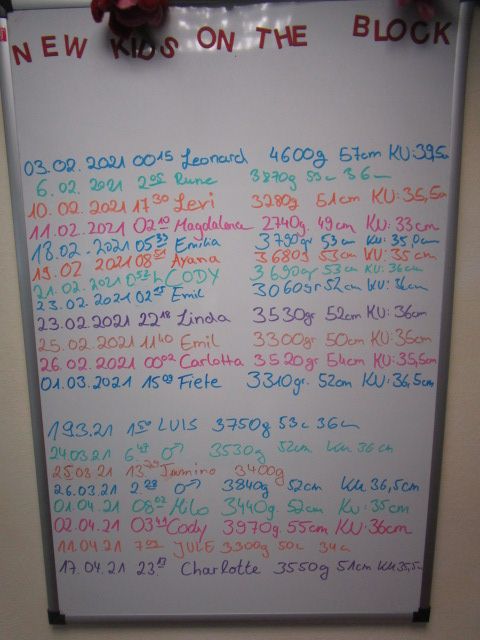 NEW KIDS ON THE BLOCK
03.02.2021 00 15 Leonard 4600g 57cm KU:39,5
6.02.2021 2 05 Rune 3870g 53c 36
10.02.2021 17 30 Levi 3280g 51cm KU:35,5
11.02.2021 02 10 Magdalena 2740g 49cm KU:33cm
18.02.2021 05 33 Emilia 3790gr 53cm KU:35,0cm
19.02 2021 08 Arana 3680g 53cm KU:35cm
21.02.2021 CODY 3690gr 53cm KU:36cm
23.02.2021 02 Emil 3060gr 52cm KU:36cm
23.02.2021 22 18 Linda 3530gr 52cm KU:36cm
25.02.2021 11 40 Emil 3300gr 50cm KU:35cm
26.02.2021 00 02 Carlotta 3520gr 54cm KU:35,5
01.03.2021 15 Fiete 3310gr. 52cm KU:36,5cm
193.21 LUIS 3750g 53c 36
24.03.21 6 ♂ 3530g 52cm KU 36cm
25.03.21 13 Jannino 3400g
26.03.21 2 ♂ 3840g 52cm KU 36,5cm
01.04.21 08 02 Milo 3440g 52cm KU:35cm
02.04.21 03 Cody 3970g 55cm KU:36cm
11.04.21 7 02 JULE 3300g 50c 34c
17.04.21 23 Charlotte 3550g 51cm KU:35,5